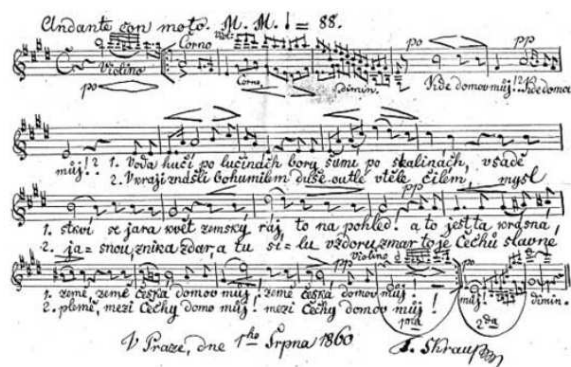 Andante con moto. M. M. ♩ = 88.
Violino Corno Viol:
po Corno dimin. po pp
Kde domov můj!? Kde domov
můj!? 1. Voda hučí po lučinách bory šumí po skalinách, v sadě
2. V kraji znášli bohumilém duše outlé v těle čilém, mysl
1. stkví se jara květ zemský ráj to na pohled! a to jest ta krásná,
2. ja=snou, znika zdar, a tu sí=lu vzdoru zmar to je Čechů slavné
Violino pp
1. země, země česká domov můj, země česká, domov můj.
2. plémě, mezi Čechy domov můj! mezi Čechy domov můj!
po můj! dimin.
1ma 2da
V Praze, dne 1ho Srpna 1860 F. Skraup